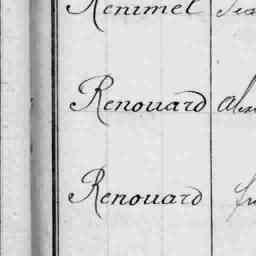 Renimel
Renouard
Renouard